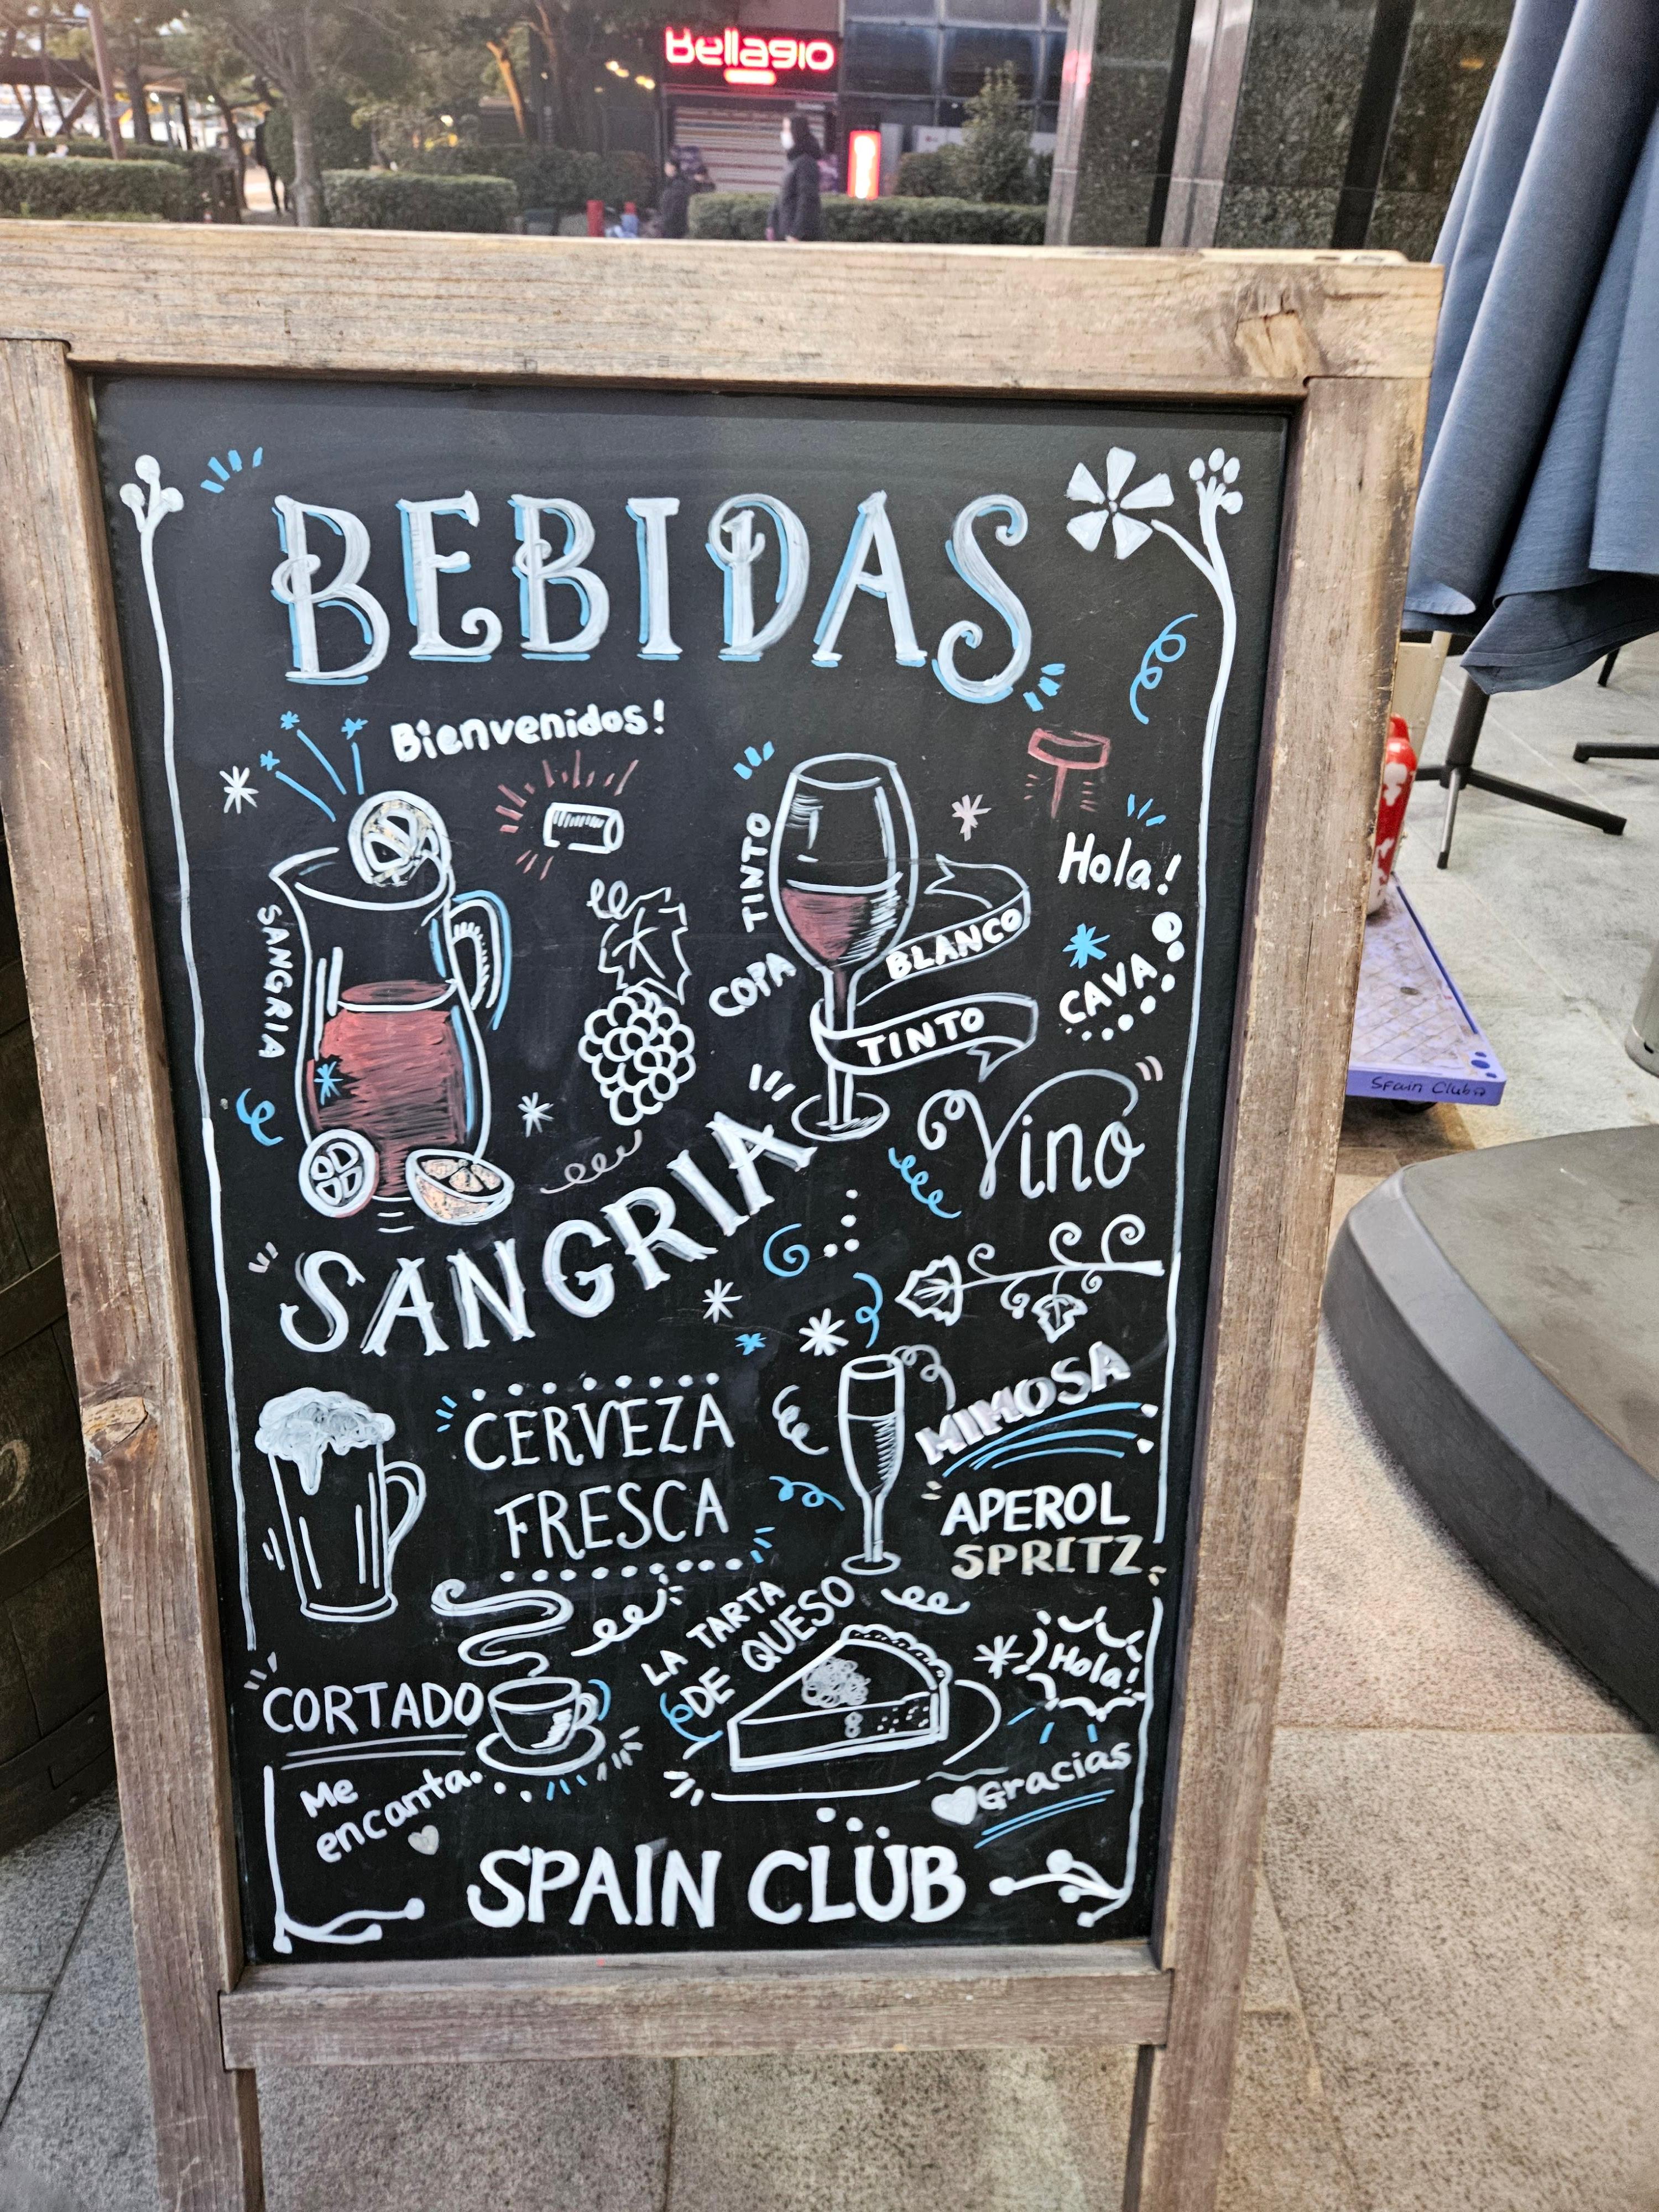 Bellagio
BEBIDAS
Bienvenidos!
SANGRIA
COPA TINTO
BLANCO
TINTO
Hola!
CAVA
Vino
SANGRIA
CERVEZA
FRESCA
MIMOSA
APEROL
SPRITZ
CORTADO
Me
encanta.
LA TARTA
DE QUESO
Hola!
Gracias
SPAIN CLUB
Spain Club